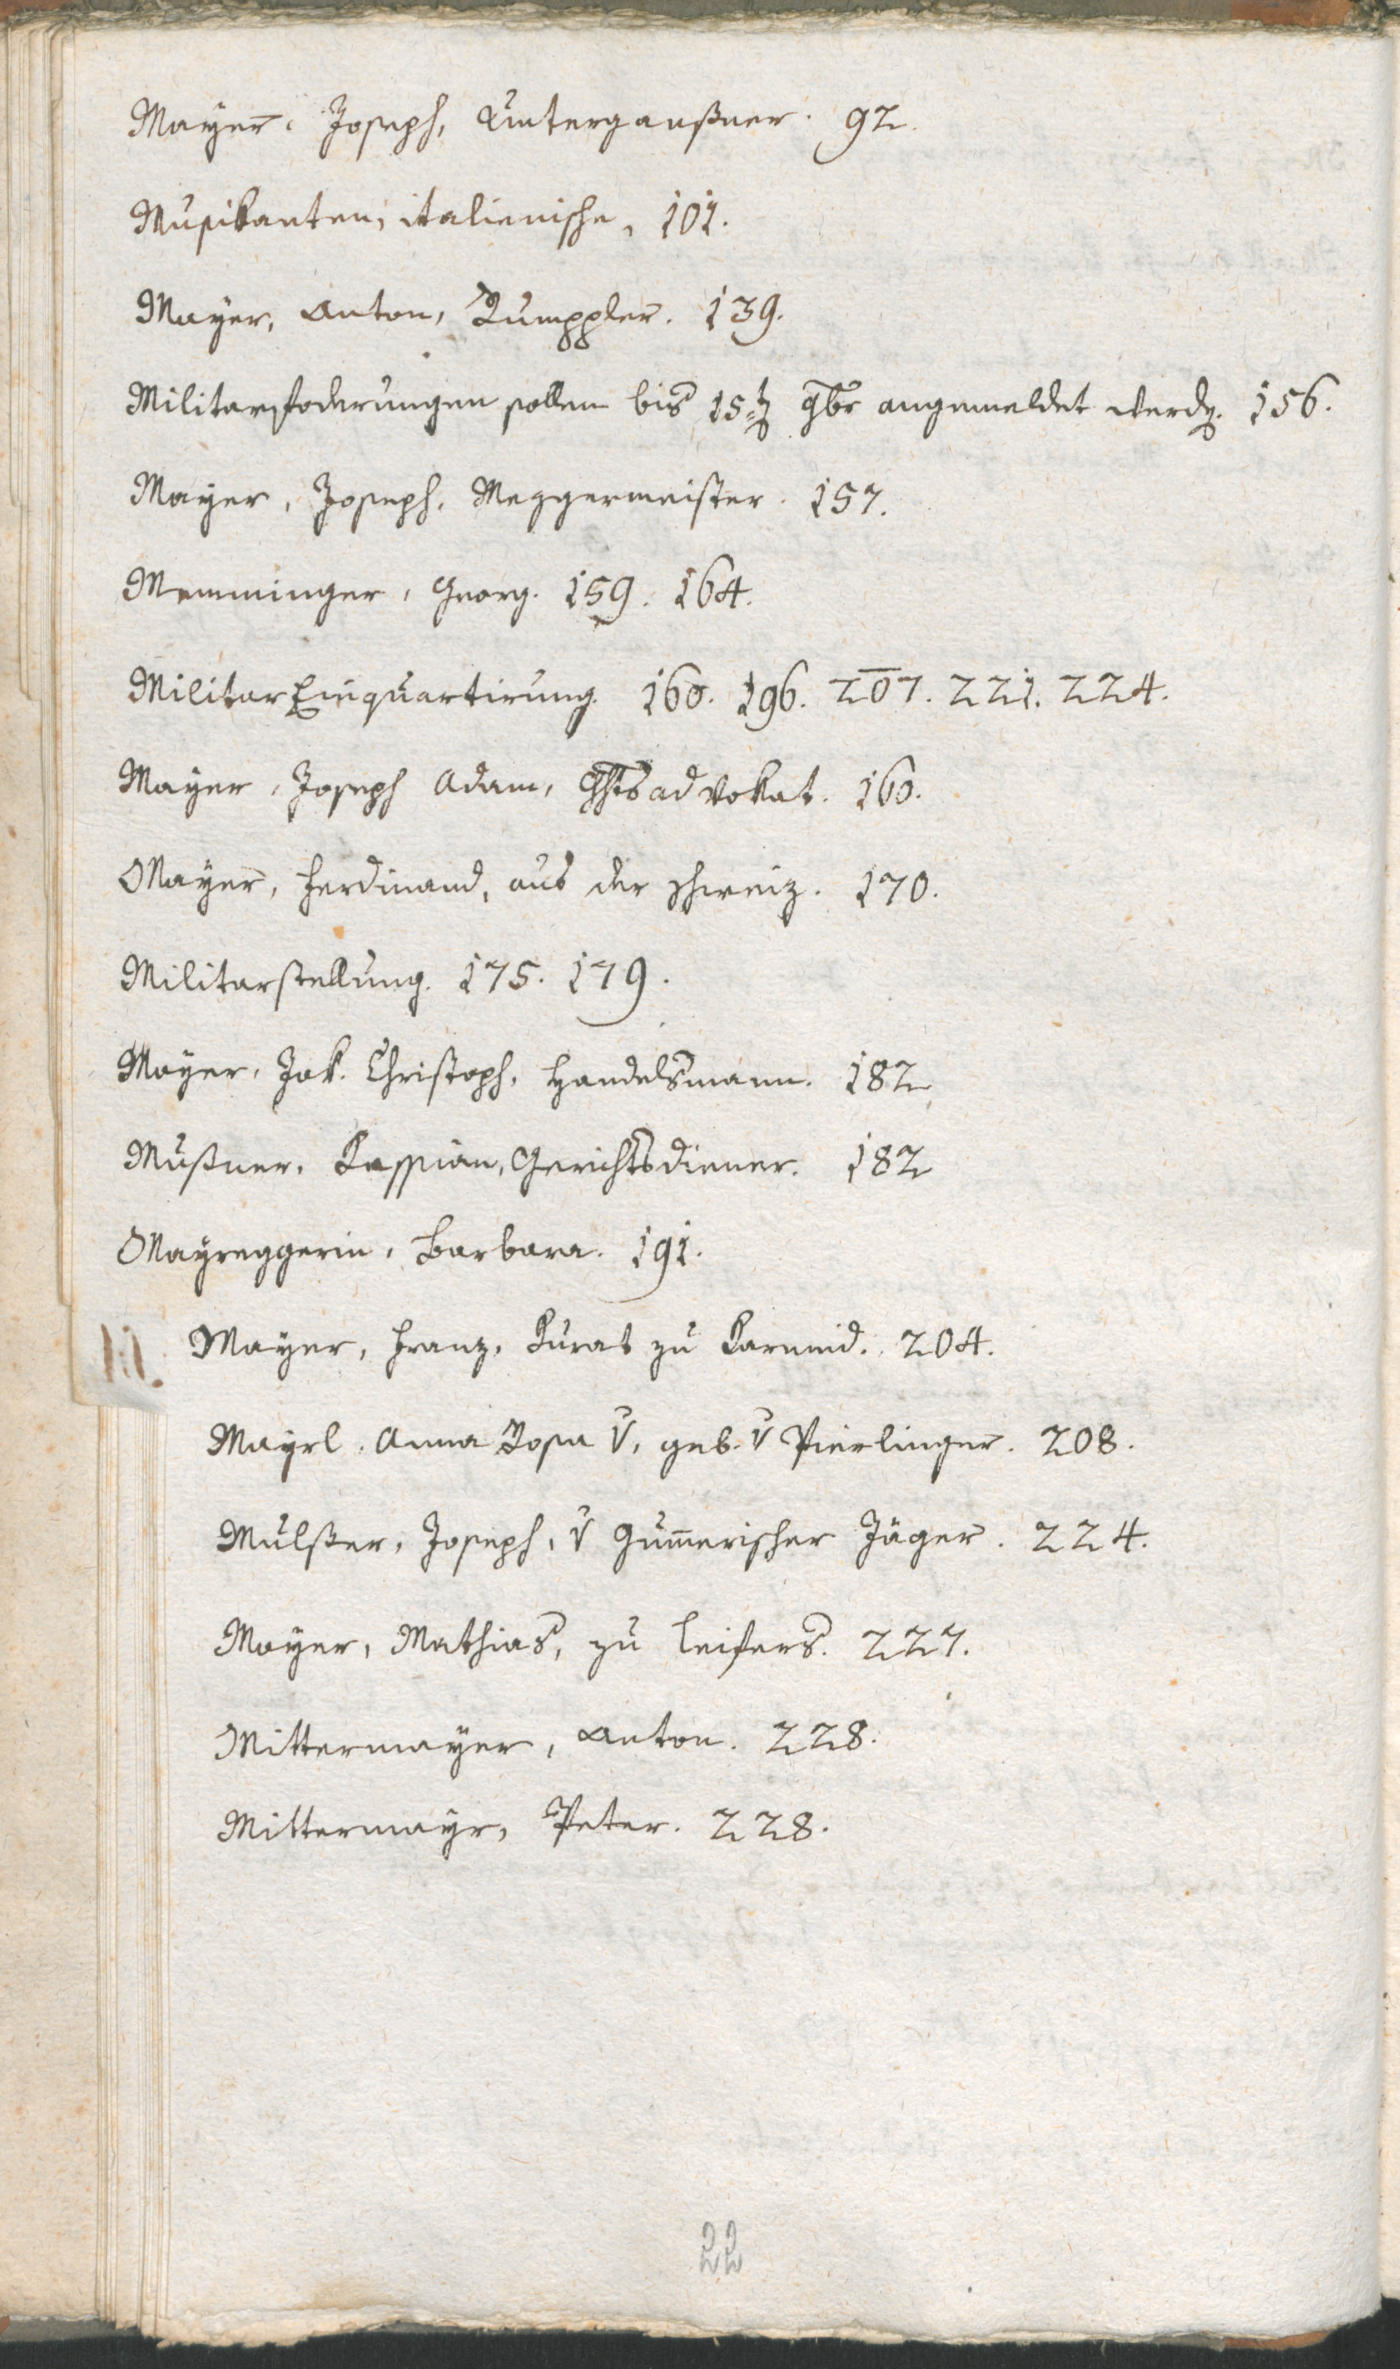 Mayer, Joseph, Unterganßner. 92.
Musikanten, italienische, 101.
Mayer, Anton, Rumppler. 139.
Militarsfoderungen sollen bis 15tẽ 9br angemeldet werdẽ. 156.
Mayer, Joseph, Mezgermeister. 157.
Memminger, Georg. 159. 164.
Militar Einquartirung. 160. 196. 207. 221. 224.
Mayer, Joseph Adam, Ghtsadvokat. 160.
Mayer, Ferdinand, aus der Schweiz. 170.
Militarstellung. 175. 179.
Mayer, Jak. Christoph, Handelsmann. 182.
Mußner, Kassian, Gerichtsdiener. 182
Mayreggerin, Barbara. 191.
M.
Mayer, Franz, Kurat zu Karneid. 204.
Mayrl, Anna Rosa v, geb. v Pierlinger. 208.
Mulßer, Joseph, v Gum̄erischer Jäger. 224.
Mayer, Mathias, zu Leifers. 227.
Mittermayer, Anton. 228.
Mittermayr, Peter. 228.
22